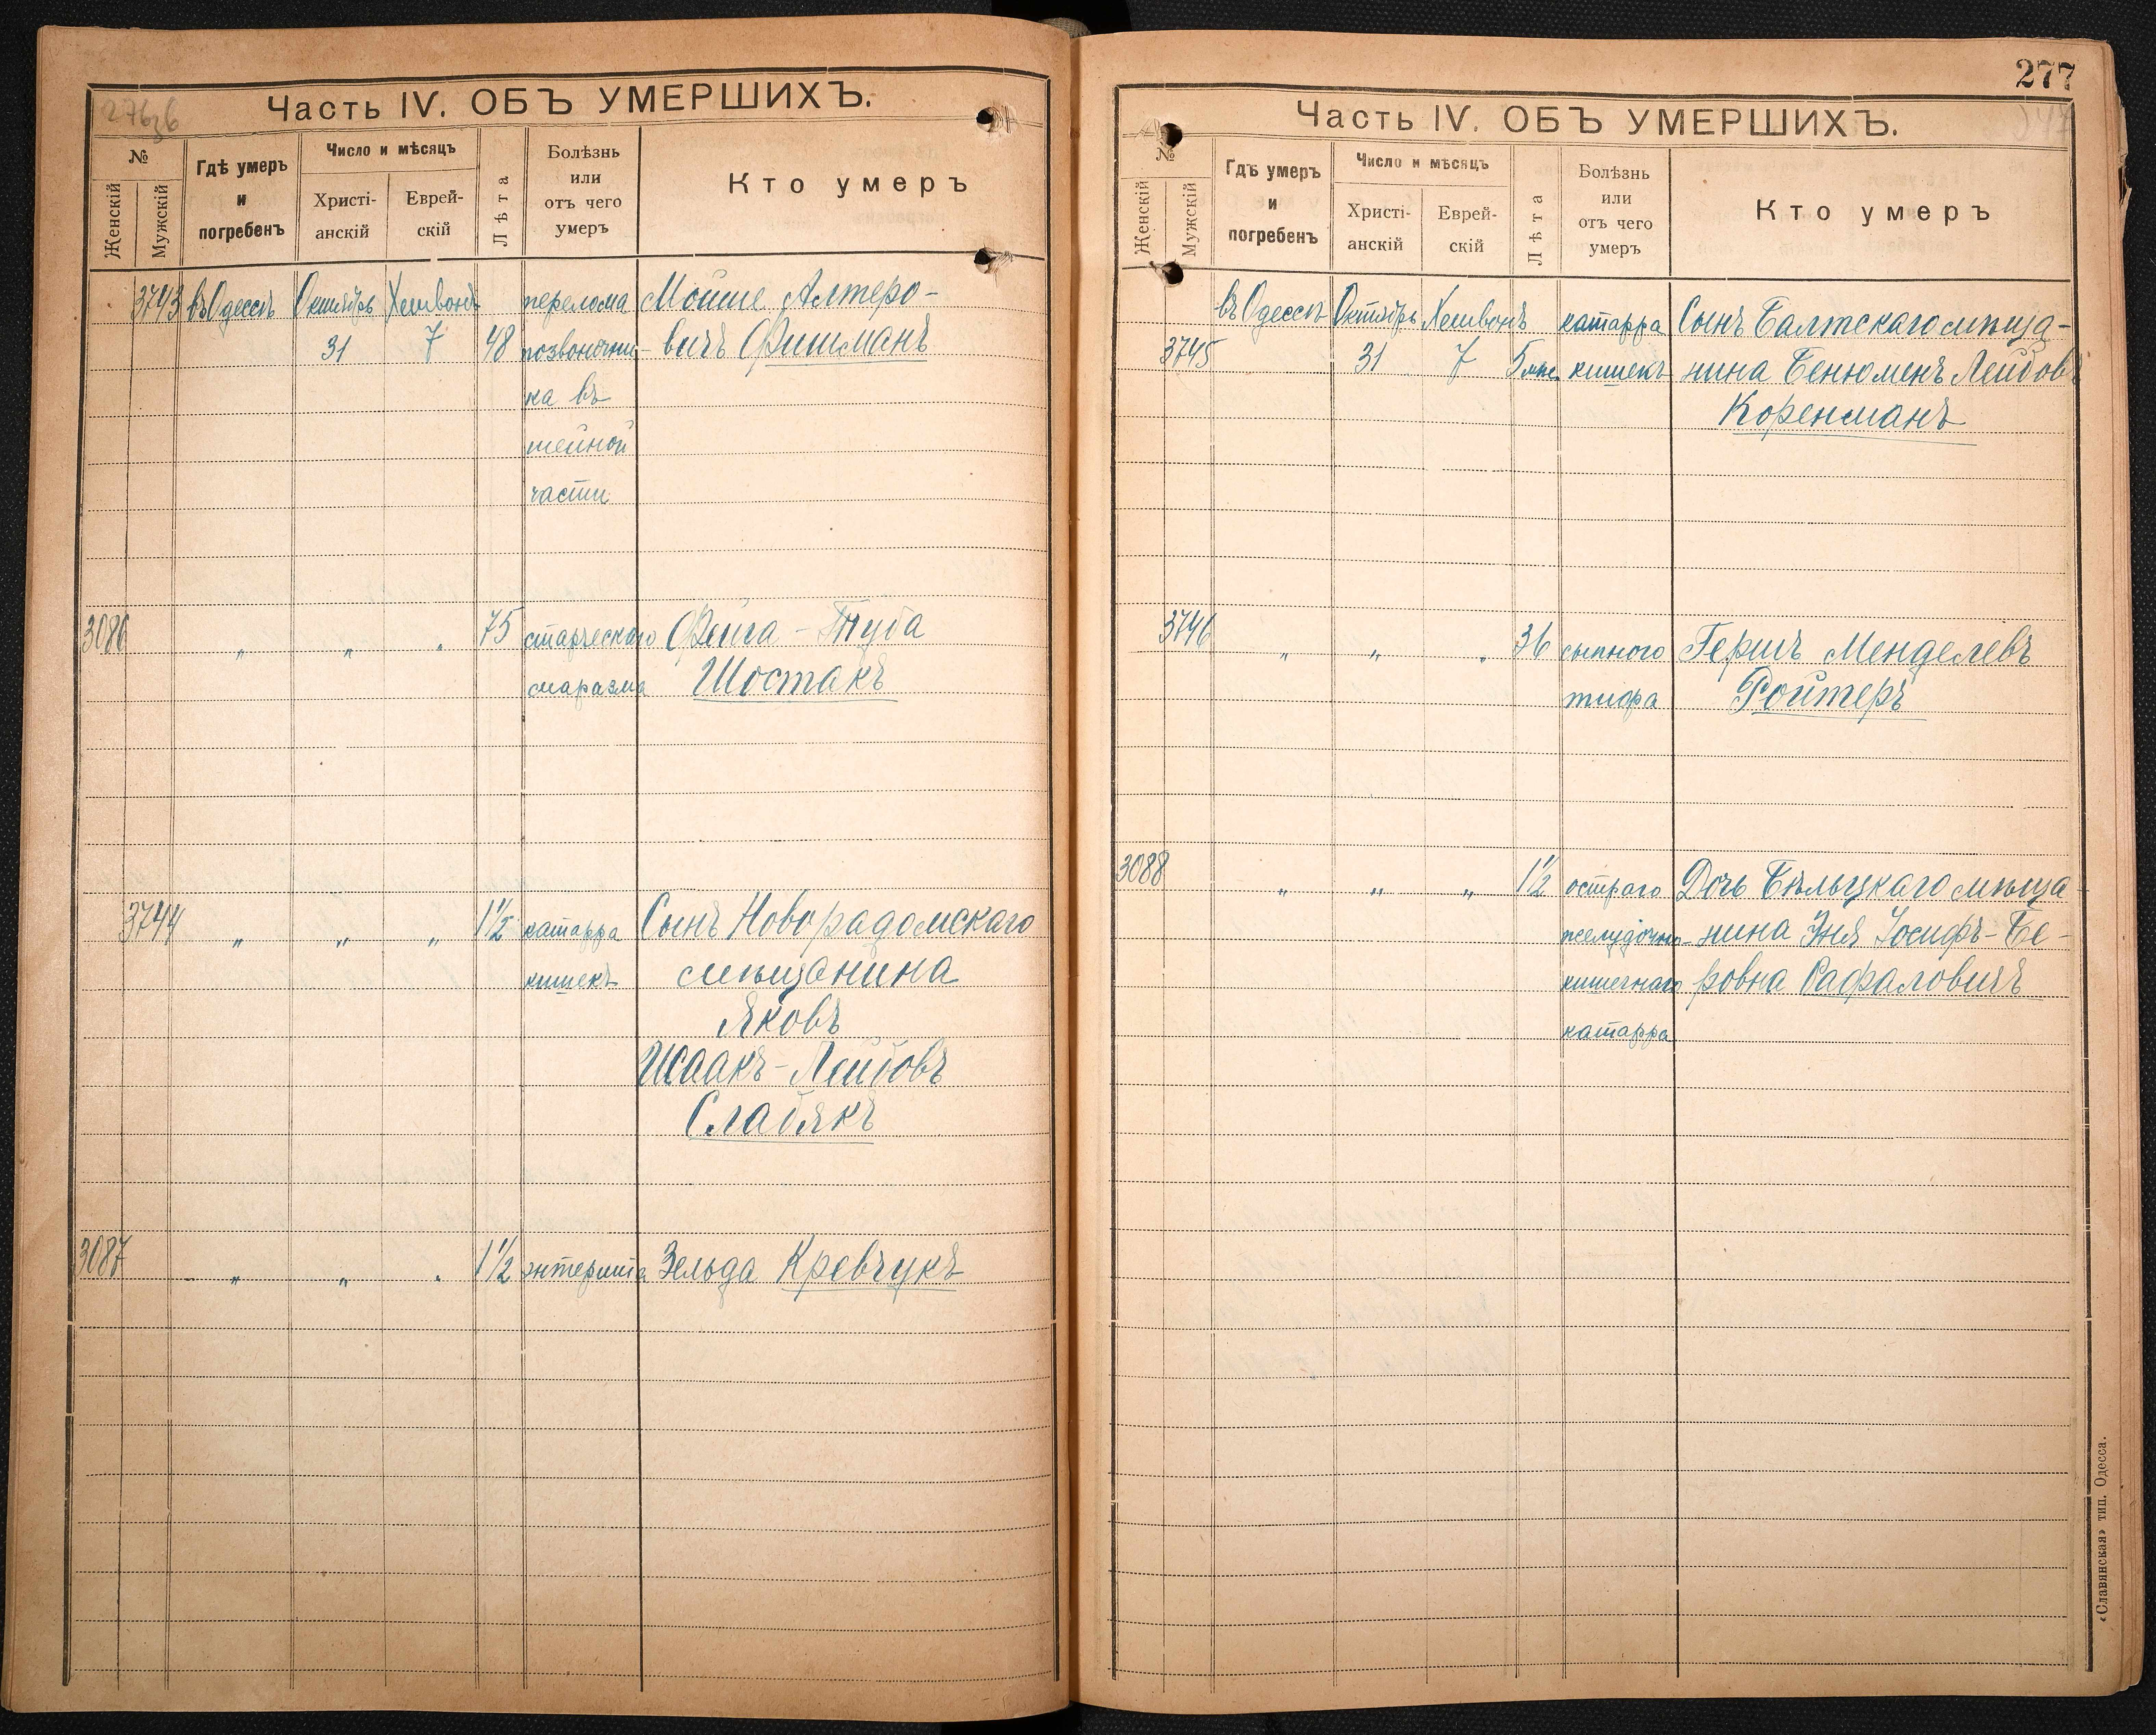 276об
Часть IV. ОБЪ УМЕРШИХЪ.
№
Женскій
Мужскій
Гдѣ умеръ
и
погребенъ
Число и мѣсяцъ
Христі-
анскій
Еврей-
скій
Лѣта
Болѣзнь
или
отъ чего
умеръ
Кто умеръ
3743 въ Одессѣ Октябрь Хешвонъ перелома Мойше Алтеро-
31 7 48 позвоночни- вичъ Фишманъ
ка въ
шейной
части
3086 " " " 75 старческаго Фейга-Туба
маразма Шостакъ
3744 " " " 1½ катарра Сынъ Новорадомскаго
кишекъ мѣщанина
Яковъ
Исаакъ-Лейбовъ
Слабякъ
3087 " " " 1½ энтерита Зельда Кревчукъ
277
Часть IV. ОБЪ УМЕРШИХЪ.
№
Женскій
Мужскій
Гдѣ умеръ
и
погребенъ
Число и мѣсяцъ
Христі-
анскій
Еврей-
скій
Лѣта
Болѣзнь
или
отъ чего
умеръ
Кто умеръ
въ Одессѣ Октябрь Хешвонъ катарра Сынъ Балтскаго мѣща-
3745 31 7 5 мѣс. кишекъ нина Бенюменъ Лейбовъ
Коренманъ
3746 " " " 36 сыпного Гершъ Менделевъ
тифа Ройтеръ
3088 " " " 1½ остраго Дочь Бѣльцкаго мѣща-
желудочно- нина Эня Іосифъ-Бе-
кишечнаго ровна Рафаловичъ
катарра
«Славянская» тип. Одесса.